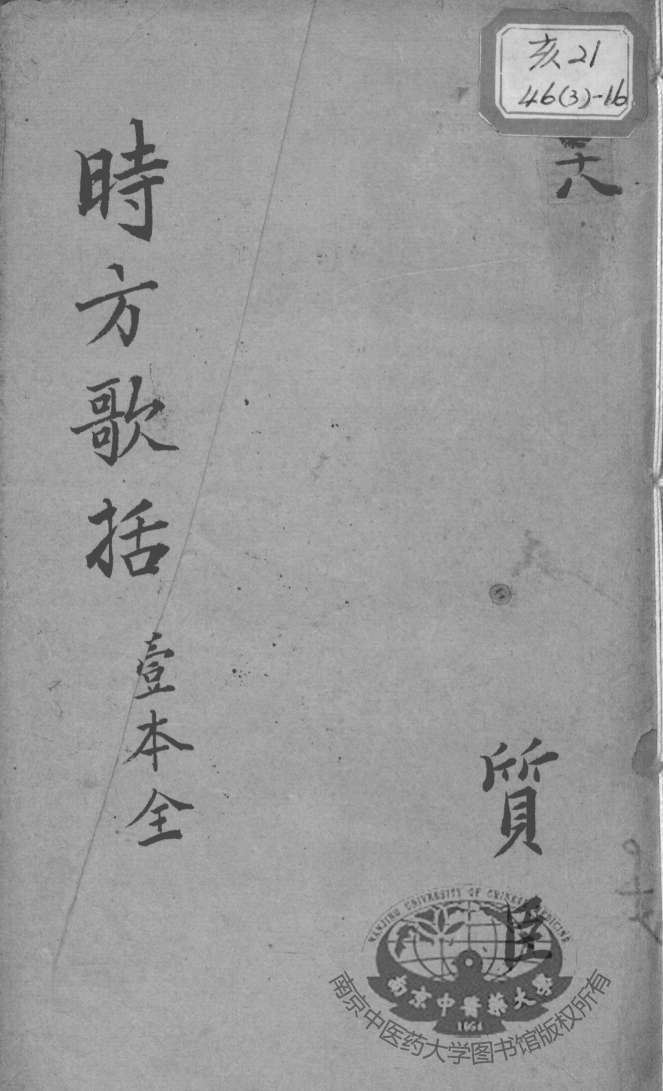 亥21
46(3)-16
十八
質臣
時方歌括
壹本全
NANJING UNIVERSITY OF CHINESE MEDICINE
南京中醫藥大學
1954
南京中医药大学图书馆版权所有